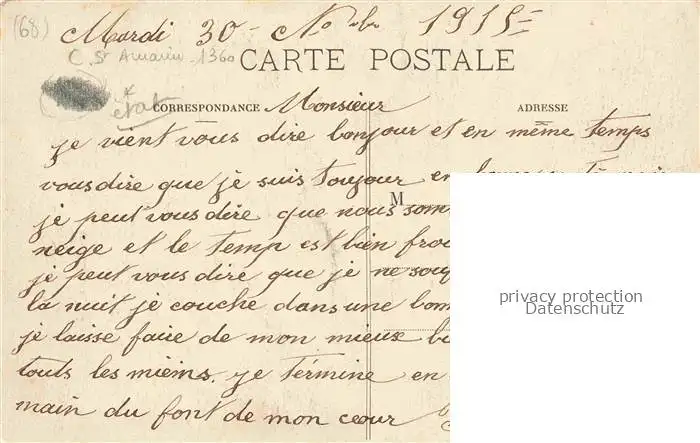 (68)
Mardi 30 Nobr 1915
C. St Amarin. 1360
CARTE POSTALE
état
CORRESPONDANCE Monsieur
ADRESSE
je vient vous dire bonjour et en même temps
vous dire que je suis toujour en
M
je peut vous dire que nous som
neige et le temp est bien froi
je peut vous dire que je ne sou
la nuit je couche dans une bon
je laisse faire de mon mieux
touts les miens. je términe en
main du font de mon cœur
privacy protection
Datenschutz